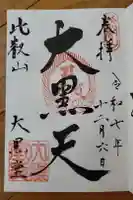 奉拝
令和七年
十二月六日
大黒天
比叡山
大黒堂